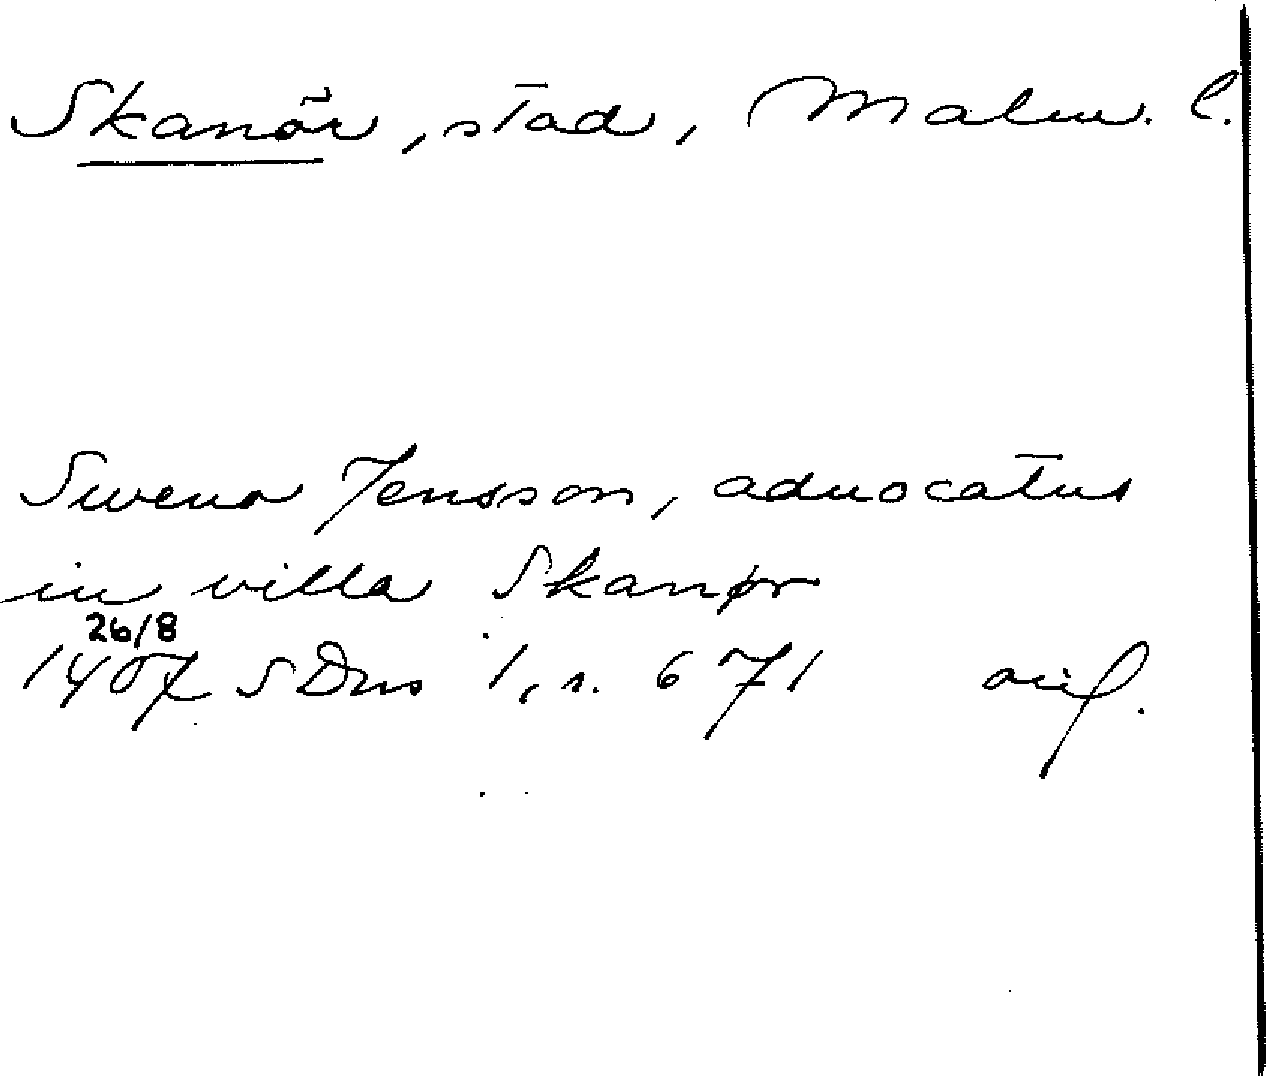 Skanör, stad, Malm. l.
Sweno Jensson, aduocatus
in villa Skanør
26/8
1407 SDns 1, s. 671 orig.